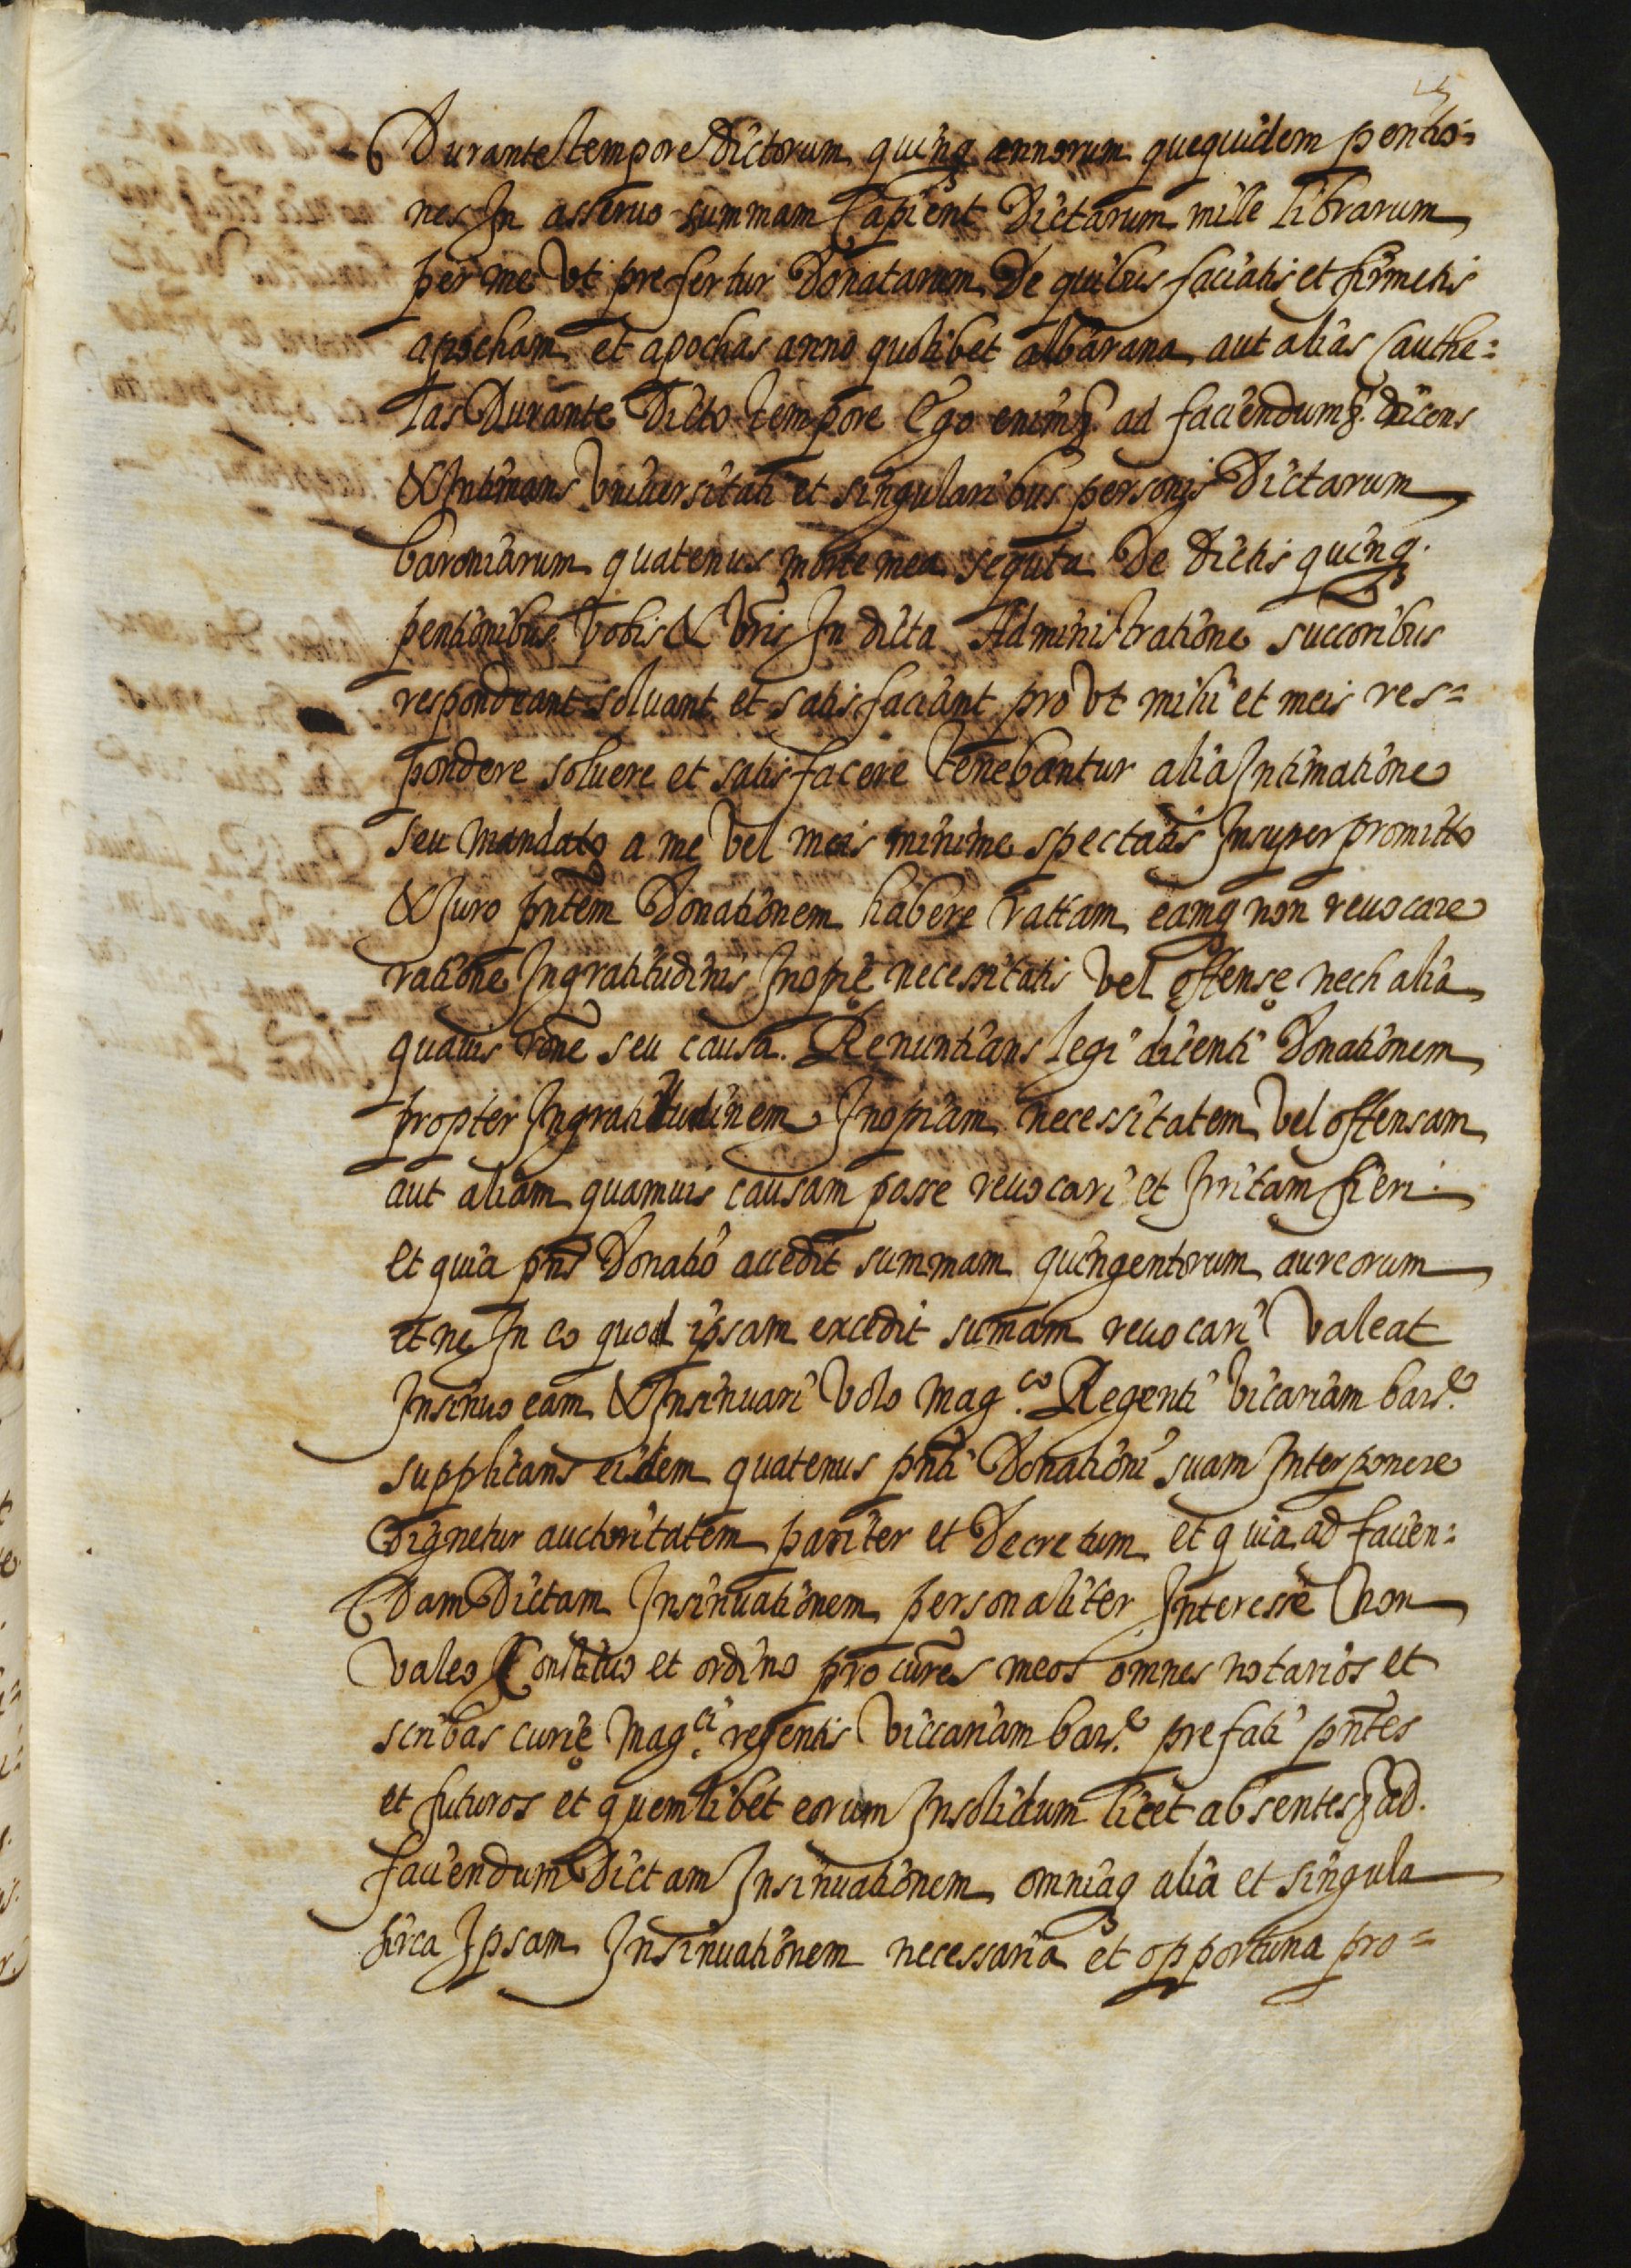 Durante tempore dictorum quinq annorum quequidem pentio=
nes In asseruo summam Capient Dictarum mille librarum
per me Vt prefertur Donatarum De quibus faciatis et firmetis
apocham et apochas anno quolibet albarana aut alias Cauthe=
las Durante Dicto tempore Ego enim ad faciendum dicens
& Intimans Vniuersitati et singularibus personis Dictarum
baroniarum quatenus morte mea sequta De dictis quinq.
pentionibus Vobis & Vris In dicta Administratione succoribus
respondeant soluant et satisfaciant pro Vt mihi et meis res=
pondere soluere et satisfacere tenebantur alia Intimatione
seu mandato a me Vel meis minime spectatis Insuper promitto
& Juro pntem Donationem habere rattam eamq non reuocare
ratione Ingratitudinis Inopię necessitatis Vel offensę nech alia
quauis rone seu causa. Renuntians legi dicenti Donationem
propter Ingratitudinem Inopiam necessitatem Vel offensam
aut aliam quamuis causam posse reuocari et Irritam fieri.
Et quia pns Donatio accedit summam quingentorum aureorum
et ne In eo quod ipsam excedit sumam reuocari Valeat
Insinuo eam & Insinuari Volo mag.co Regenti Vicariam bar.e
supplicans eidem quatenus pnti Donationi suam Interponere
Dignetur auctoritatem pariter et Decretum et quia ad facien=
Dam Dictam Insinuationem personaliter Interesse non
Valeo Constituo et ordino procures meos omnes notarios et
scribas curię mag.ci regentis Viccariam bar.e prefati pntes
et futuros et quemlibet eorum Insolidum licet absentes ad.
faciendum Dictam Insinuationem omniaq alia et singula
sirca Ipsam Insinuationem necessaria et opportuna pro=